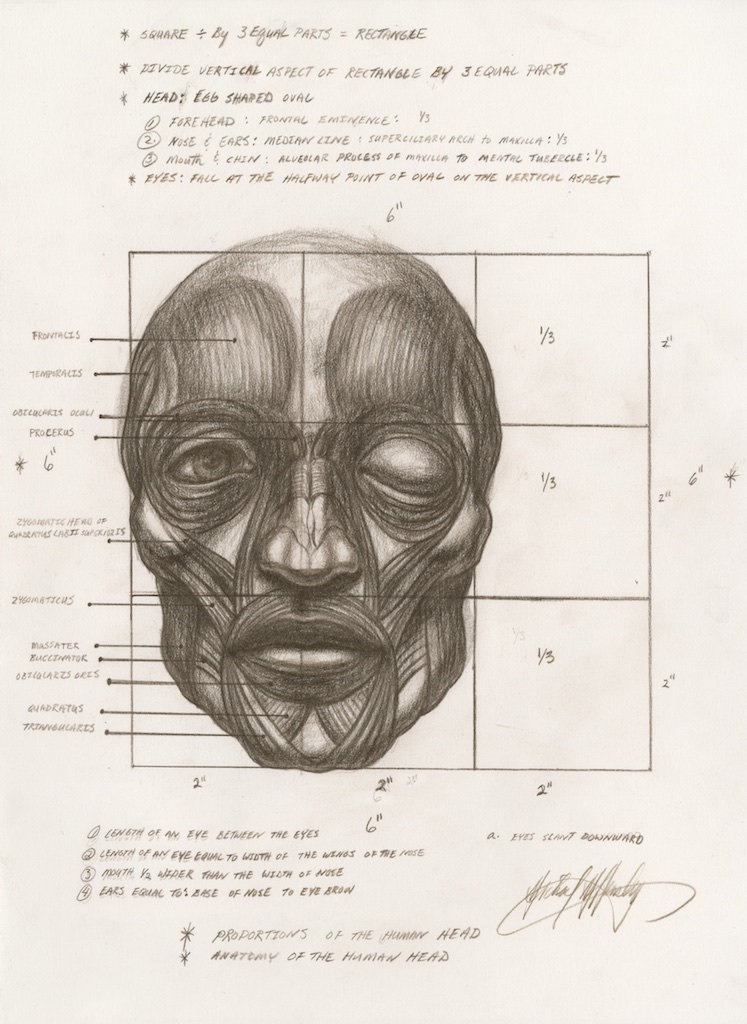 * SQUARE ÷ By 3 EQUAL PARTS = RECTANGLE
* DIVIDE VERTICAL ASPECT OF RECTANGLE BY 3 EQUAL PARTS
* HEAD: EGG SHAPED OVAL
① FOREHEAD : FRONTAL EMINENCE : 1/3
② NOSE & EARS : MEDIAN LINE : SUPERCILIARY ARCH to MAXILLA : 1/3
③ MOUTH & CHIN : ALVEOLAR PROCESS OF MAXILLA TO MENTAL TUBERCLE : 1/3
* EYES : FALL AT THE HALFWAY POINT OF OVAL ON THE VERTICAL ASPECT
6"
FRONTALIS
1/3
2"
TEMPORALIS
OBICULARIS OCULI
PROCERUS
* 6"
1/3
2"
6" *
ZYGOMATIC HEAD OF
QUADRATUS LABII SUPERIORIS
ZYGOMETICUS
1/3
1/3
2"
MASSATER
BUCCINATOR
OBICULARIS ORIS
QUADRATUS
TRIANGULARIS
2"
2"
2"
2"
6
6"
① LENGTH OF AN EYE BETWEEN THE EYES
② LENGTH OF AN EYE EQUAL TO WIDTH OF THE WINGS OF THE NOSE
③ MOUTH 1/2 WIDER THAN THE WIDTH OF NOSE
④ EARS EQUAL TO: BASE OF NOSE TO EYE BROW
a. EYES SLANT DOWNWARD
* PROPORTIONS OF THE HUMAN HEAD
* ANATOMY OF THE HUMAN HEAD